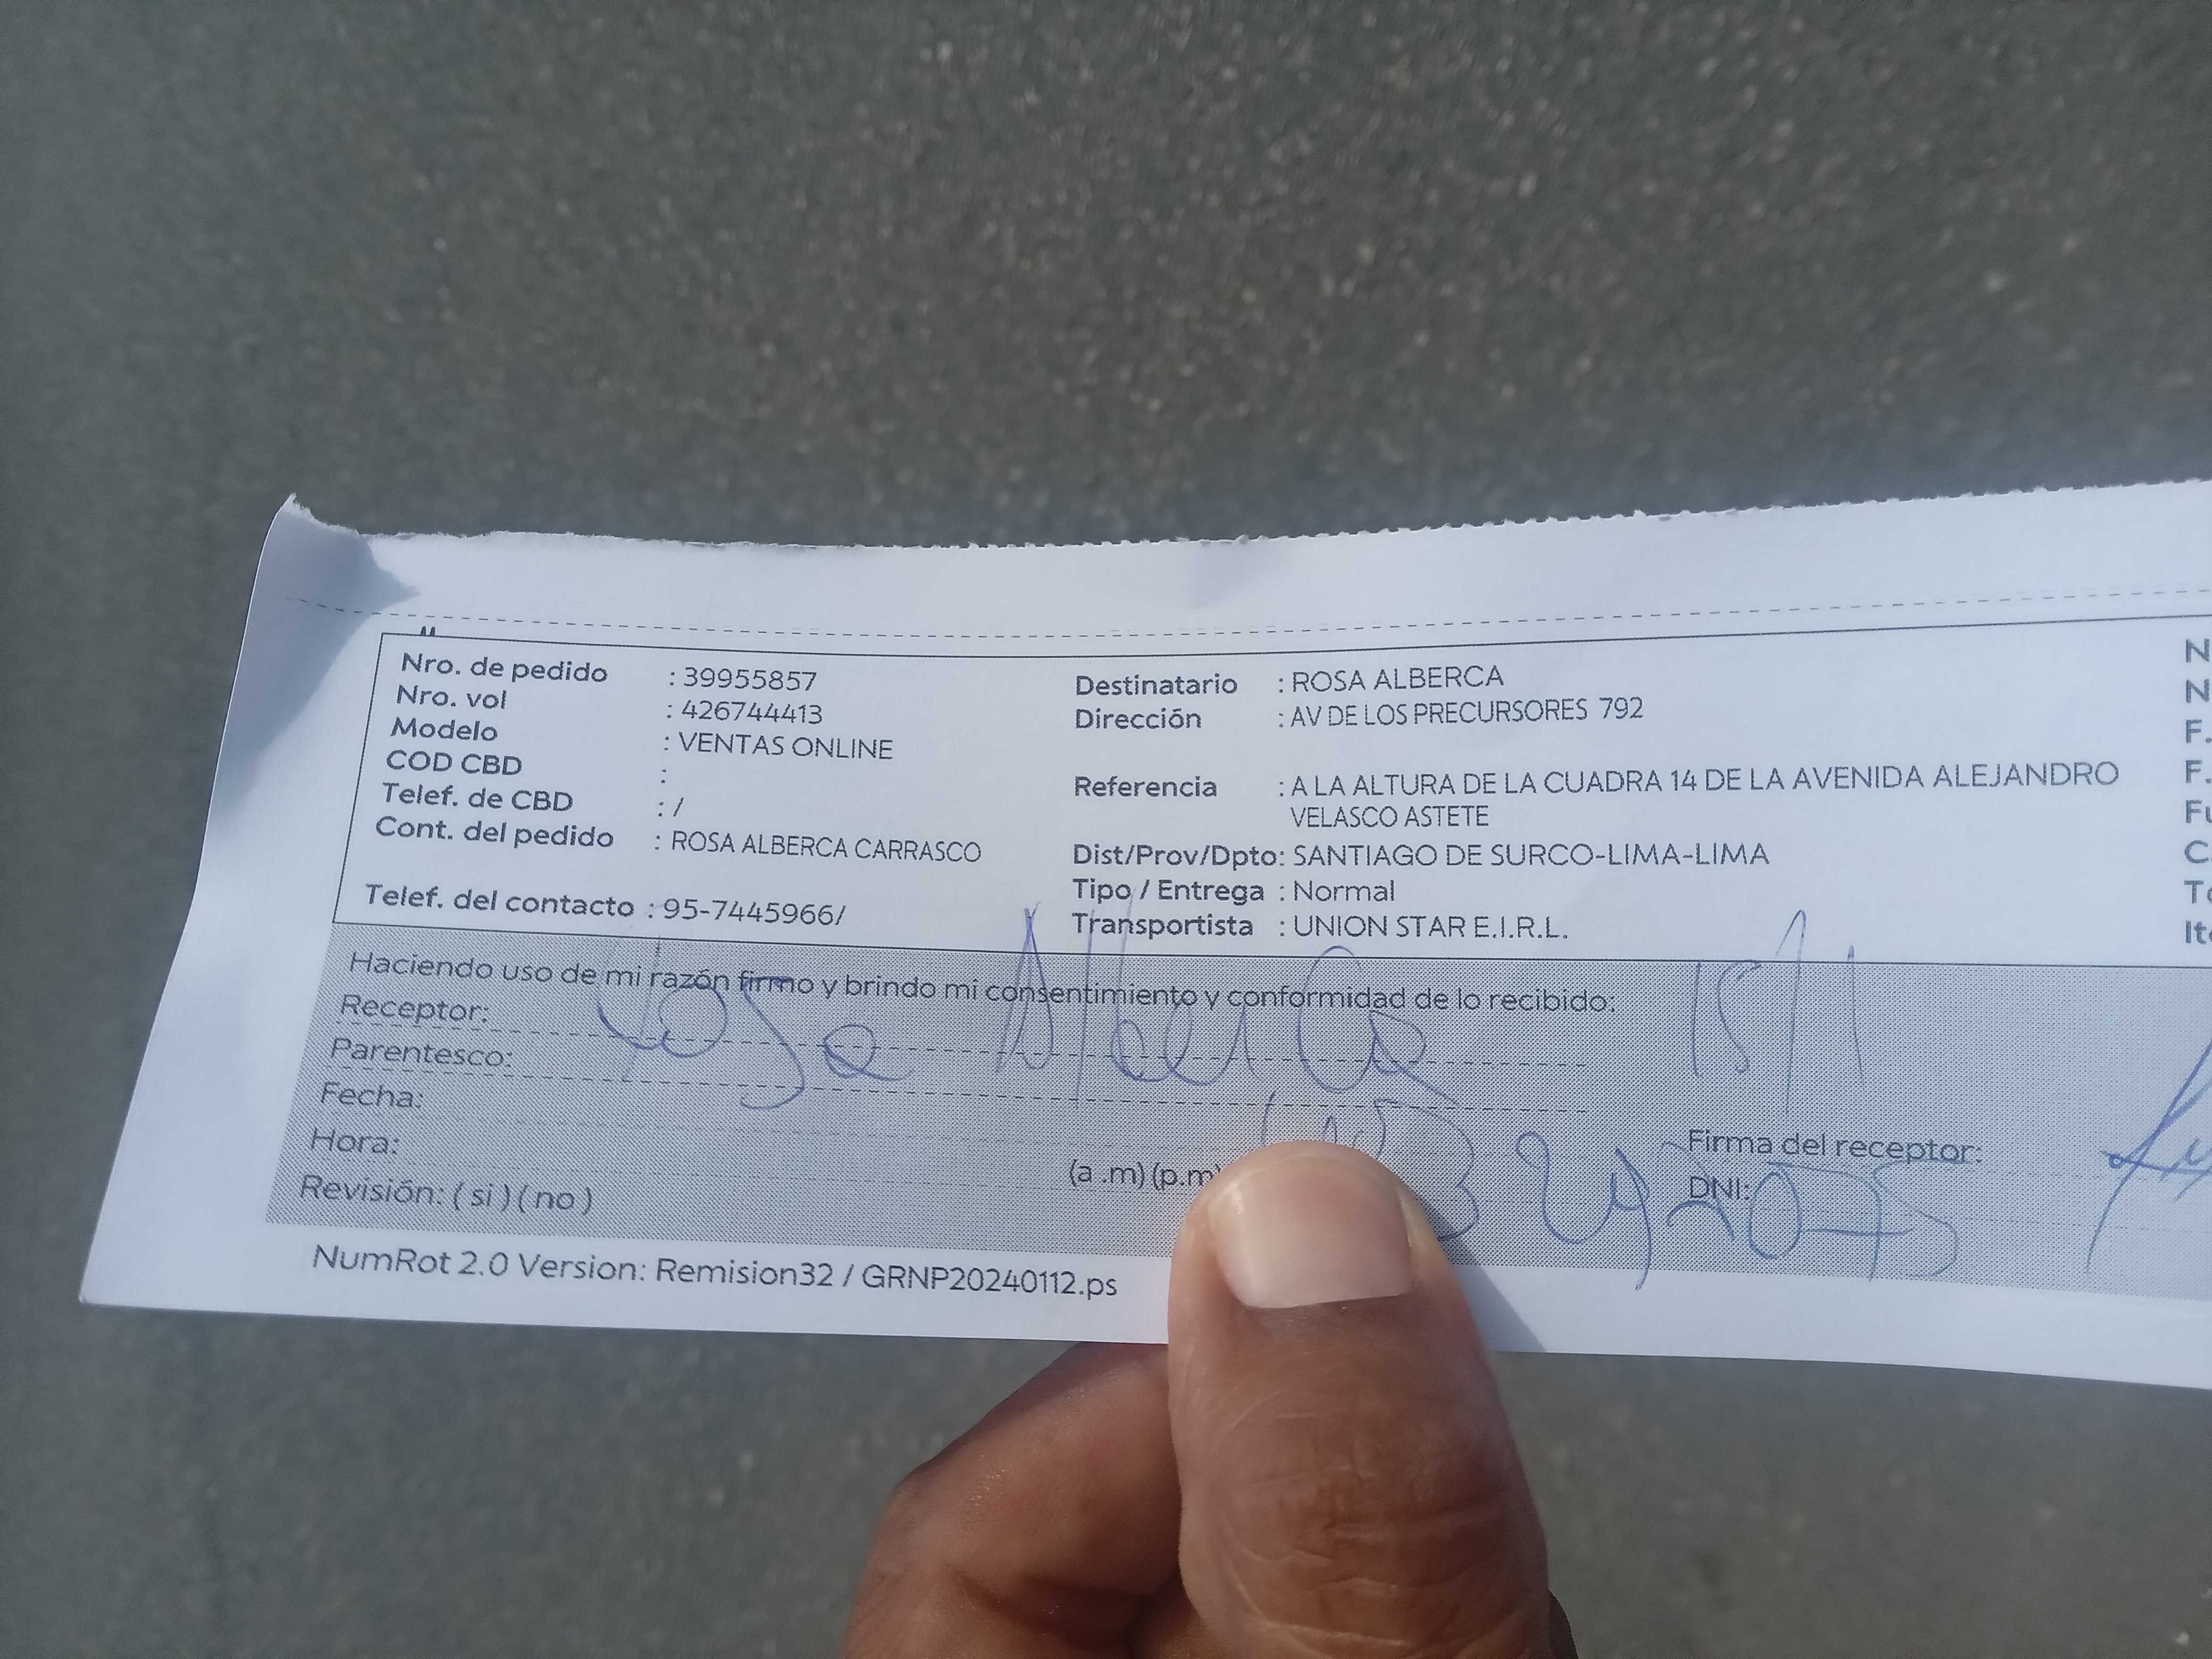 Nro. de pedido : 39955857
Nro. vol : 426744413
Modelo : VENTAS ONLINE
COD CBD :
Telef. de CBD : /
Cont. del pedido : ROSA ALBERCA CARRASCO
Telef. del contacto : 95-7445966/
Destinatario : ROSA ALBERCA
Dirección : AV DE LOS PRECURSORES 792
Referencia : A LA ALTURA DE LA CUADRA 14 DE LA AVENIDA ALEJANDRO
VELASCO ASTETE
Dist/Prov/Dpto: SANTIAGO DE SURCO-LIMA-LIMA
Tipo / Entrega : Normal
Transportista : UNION STAR E.I.R.L.
N
N
F.
F.
Haciendo uso de mi razón firmo y brindo mi consentimiento y conformidad de lo recibido:
Receptor:
Parentesco:
Fecha:
Hora: (a .m) (p.m)
Revisión: ( si ) ( no )
Firma del receptor:
DNI:
NumRot 2.0 Version: Remision32 / GRNP20240112.ps